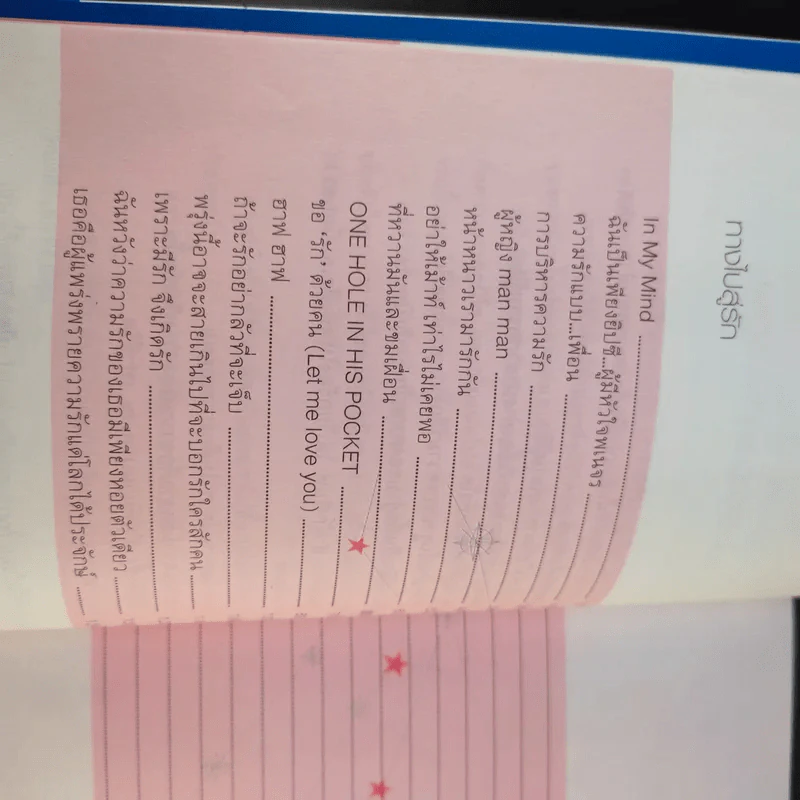 ทางไปสู่รัก
In My Mind
ฉันเป็นเพียงยิปซี...ผู้มีหัวใจพเนจร
ความรักแบบ...เพื่อน
การบริหารความรัก
ผู้หญิง man man
หน้าหนาวเรามารักกัน
อย่าให้เม้าท์ เท่าไรไม่เคยพอ
ที่หวานมันและขมเฝื่อน
ONE HOLE IN HIS POCKET
ขอ ‘รัก’ ด้วยคน (Let me love you)
ฮาฟ ฮาฟ
ถ้าจะรักอย่ากลัวที่จะเจ็บ
พรุ่งนี้อาจจะสายเกินไปที่จะบอกรักใครสักคน
เพราะมีรัก จึงเกิดรัก
ฉันหวังว่าความรักของเธอมีเพียงหอยตัวเดียว
เธอคือผู้แพร่งพรายความรักแด่โลกได้ประจักษ์